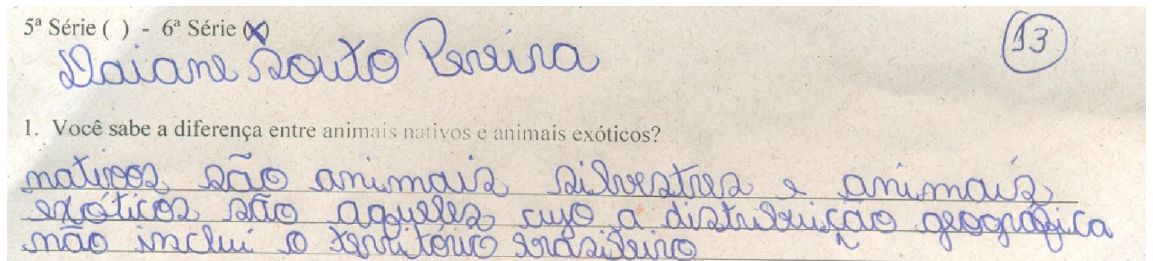 5ª Série ( ) - 6ª Série (X)
13
Daiane Souto Pereira
1. Você sabe a diferença entre animais nativos e animais exóticos?
nativos são animais silvestres e animais
exóticos são aqueles cujo a distribuição geográfica
não inclui o território brasileiro